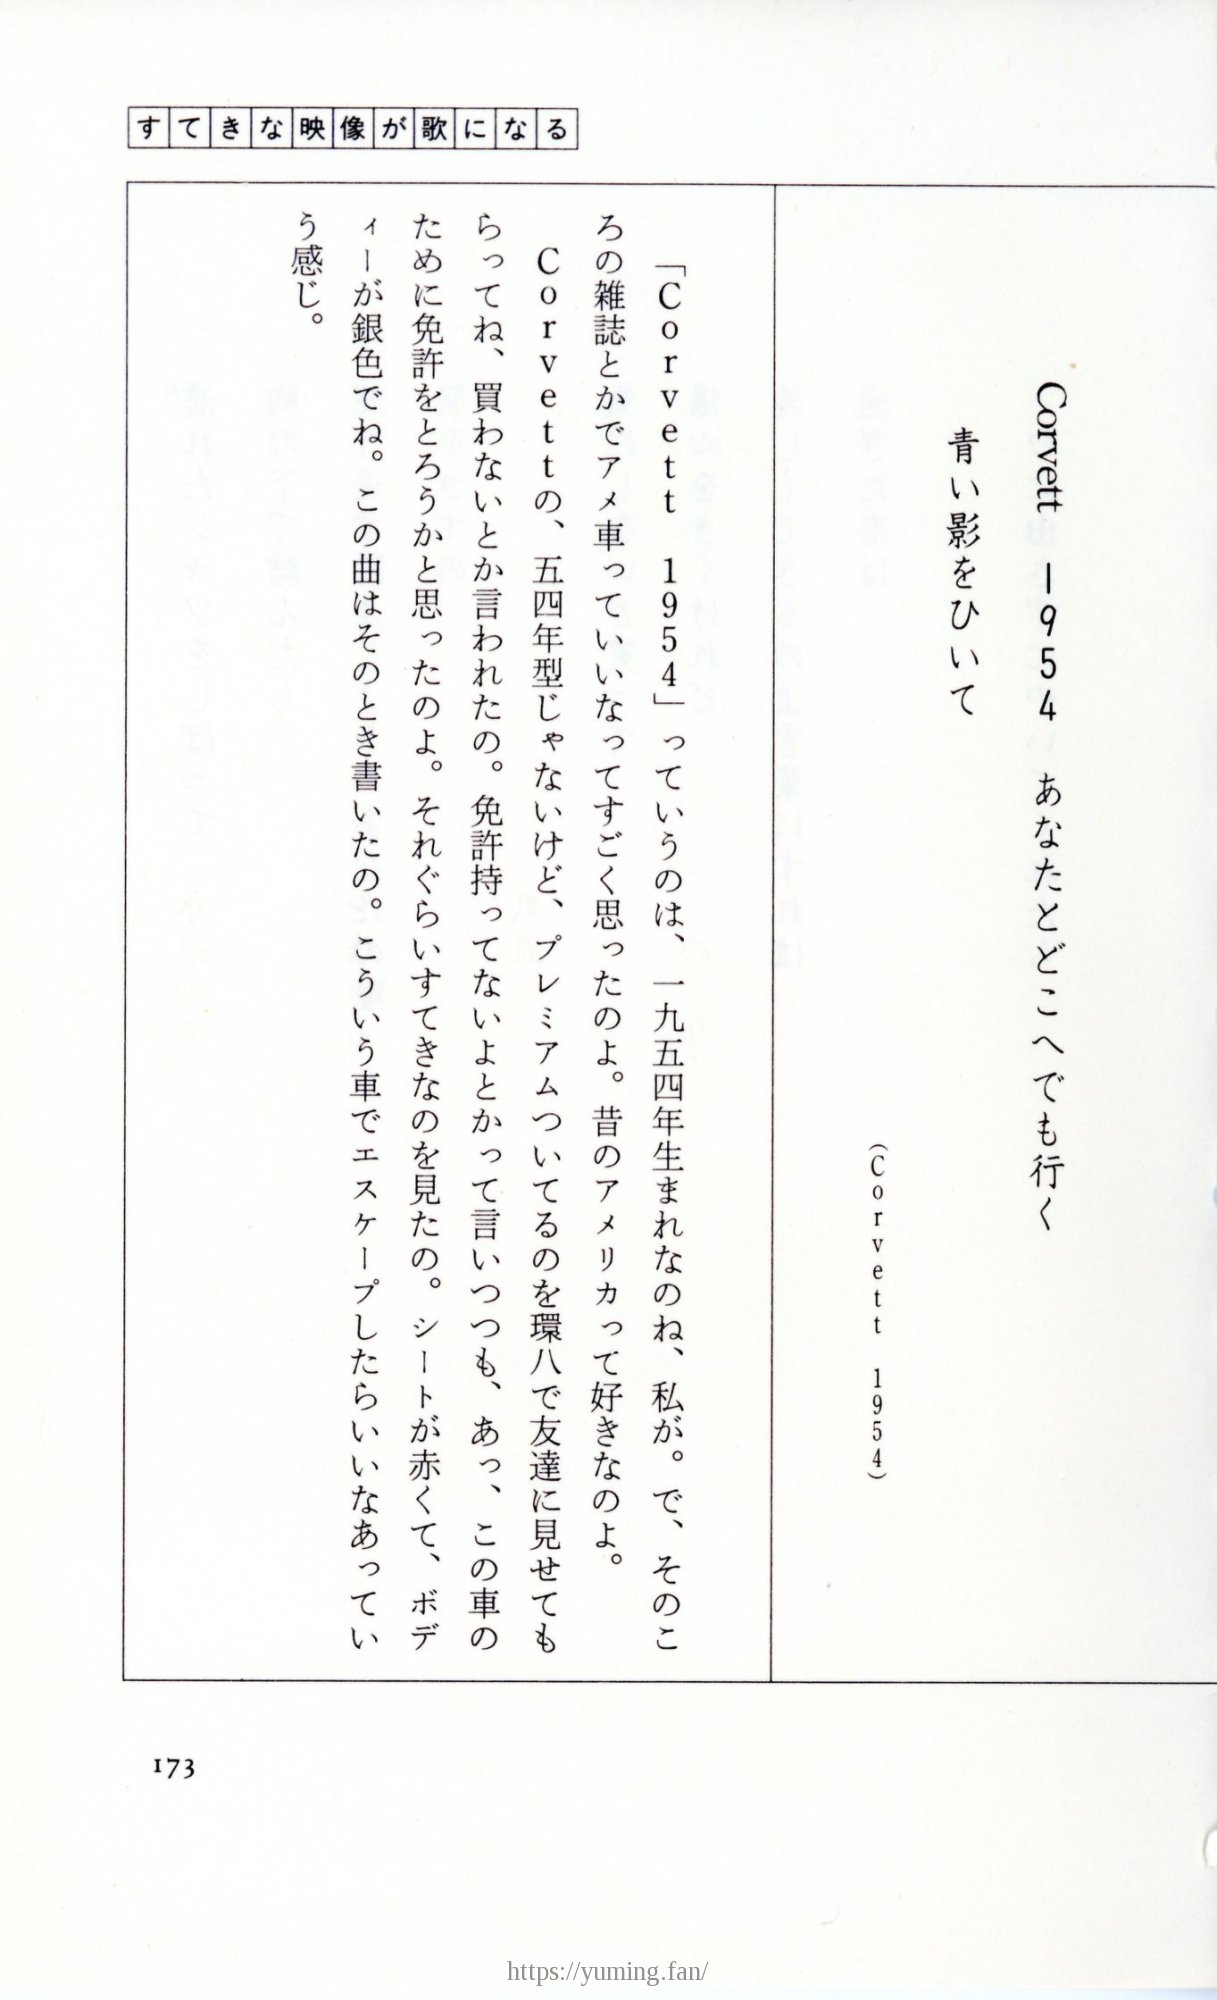 すてきな映像が歌になる
Corvett 1954 あなたとどこへでも行く
青い影をひいて
（Corvett 1954）
「Corvett 1954」っていうのは、一九五四年生まれなのね、私が。で、そのこ
ろの雑誌とかでアメ車っていいなってすごく思ったのよ。昔のアメリカって好きなのよ。
Corvettの、五四年型じゃないけど、プレミアムついてるのを環八で友達に見せても
らってね、買わないとか言われたの。免許持ってないよとかって言いつつも、あっ、この車の
ために免許をとろうかと思ったのよ。それぐらいすてきなのを見たの。シートが赤くて、ボデ
ィーが銀色でね。この曲はそのとき書いたの。こういう車でエスケープしたらいいなあってい
う感じ。
173
https://yuming.fan/